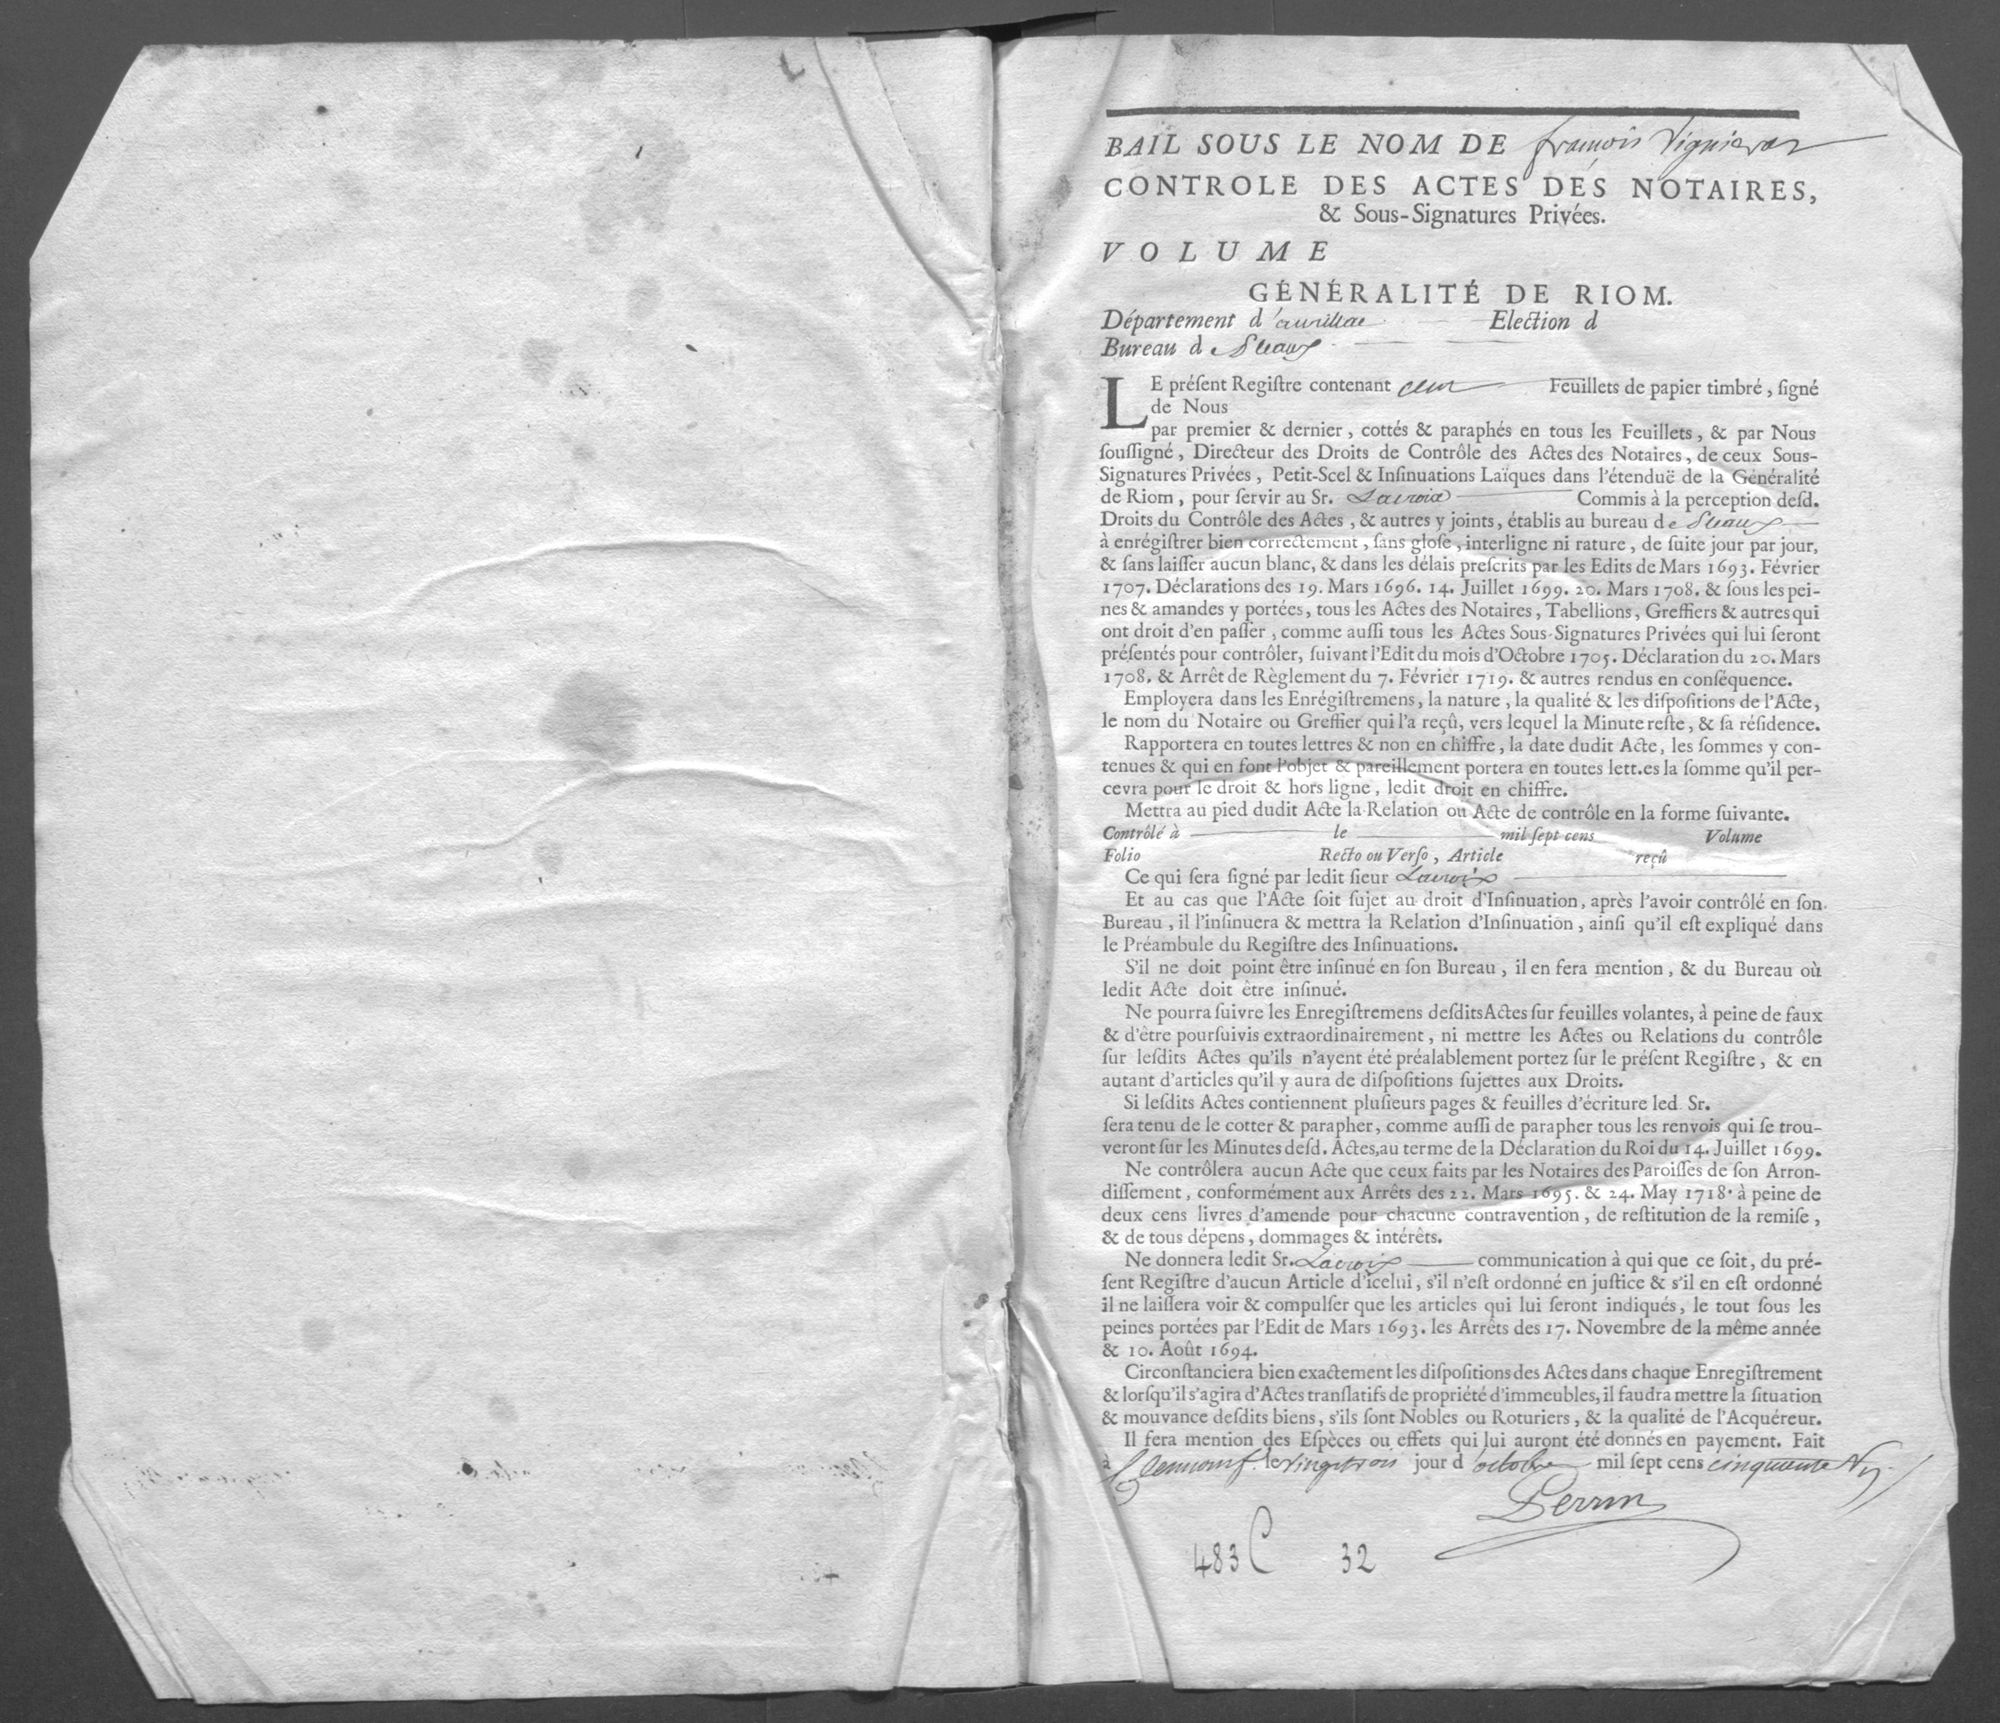 BAIL SOUS LE NOM DE françois
CONTROLE DES ACTES DES NOTAIRES,
& Sous-Signatures Privées.
VOLUME
GÉNÉRALITÉ DE RIOM.
Département d'aurillac Election d
Bureau de Pleaux
LE préſent Regiſtre contenant cent Feuillets de papier timbré, ſigné
de Nous
par premier & dernier, cottés & paraphés en tous les Feuillets, & par Nous
ſouſſigné, Directeur des Droits de Contrôle des Actes des Notaires, de ceux Sous-
Signatures Privées, Petit-Scel & Inſinuations Laïques dans l'étenduë de la Généralité
de Riom, pour ſervir au Sr. Lacroix Commis à la perception deſd.
Droits du Contrôle des Actes, & autres y joints, établis au bureau de Pleaux
à enrégiſtrer bien correctement, ſans gloſe, interligne ni rature, de ſuite jour par jour,
& ſans laiſſer aucun blanc, & dans les délais preſcrits par les Edits de Mars 1693. Février
1707. Déclarations des 19. Mars 1696. 14. Juillet 1699. 20. Mars 1708. & ſous les pei-
nes & amandes y portées, tous les Actes des Notaires, Tabellions, Greffiers & autres qui
ont droit d'en paſſer, comme auſſi tous les Actes Sous-Signatures Privées qui lui ſeront
préſentés pour contrôler, ſuivant l'Edit du mois d'Octobre 1705. Déclaration du 20. Mars
1708. & Arrêt de Règlement du 7. Février 1719. & autres rendus en conſéquence.
Employera dans les Enrégiſtremens, la nature, la qualité & les diſpoſitions de l'Acte,
le nom du Notaire ou Greffier qui l'a reçû, vers lequel la Minute reſte, & ſa réſidence.
Rapportera en toutes lettres & non en chiffre, la date dudit Acte, les ſommes y con-
tenues & qui en font l'objet & pareillement portera en toutes lett.es la ſomme qu'il per-
cevra pour le droit & hors ligne, ledit droit en chiffre.
Mettra au pied dudit Acte la Relation ou Acte de contrôle en la forme ſuivante.
Contrôlé à le mil ſept cens Volume
Folio Recto ou Verſo, Article reçû
Ce qui ſera ſigné par ledit ſieur Lacroix
Et au cas que l'Acte ſoit ſujet au droit d'Inſinuation, après l'avoir contrôlé en ſon
Bureau, il l'inſinuera & mettra la Relation d'Inſinuation, ainſi qu'il eſt expliqué dans
le Préambule du Regiſtre des Inſinuations.
S'il ne doit point être inſinué en ſon Bureau, il en fera mention, & du Bureau où
ledit Acte doit être inſinué.
Ne pourra ſuivre les Enregiſtremens deſdits Actes ſur feuilles volantes, à peine de faux
& d'être pourſuivis extraordinairement, ni mettre les Actes ou Relations du contrôle
ſur leſdits Actes qu'ils n'ayent été préalablement portez ſur le préſent Regiſtre, & en
autant d'articles qu'il y aura de diſpoſitions ſujettes aux Droits.
Si leſdits Actes contiennent pluſieurs pages & feuilles d'écriture led. Sr.
ſera tenu de le cotter & parapher, comme auſſi de parapher tous les renvois qui ſe trou-
veront ſur les Minutes deſd. Actes, au terme de la Déclaration du Roi du 14. Juillet 1699.
Ne contrôlera aucun Acte que ceux faits par les Notaires des Paroiſſes de ſon Arron-
diſſement, conformément aux Arrêts des 22. Mars 1695. & 24. May 1718. à peine de
deux cens livres d'amende pour chacune contravention, de reſtitution de la remiſe,
& de tous dépens, dommages & intérêts.
Ne donnera ledit Sr. Lacroix communication à qui que ce ſoit, du pré-
ſent Regiſtre d'aucun Article d'icelui, s'il n'eſt ordonné en juſtice & s'il en eſt ordonné
il ne laiſſera voir & compulſer que les articles qui lui ſeront indiqués, le tout ſous les
peines portées par l'Edit de Mars 1693. les Arrêts des 17. Novembre de la même année
& 10. Août 1694.
Circonſtanciera bien exactement les diſpoſitions des Actes dans chaque Enregiſtrement
& lorſqu'il s'agira d'Actes tranſlatifs de propriété d'immeubles, il faudra mettre la ſituation
& mouvance deſdits biens, s'ils ſont Nobles ou Roturiers, & la qualité de l'Acquéreur.
Il fera mention des Eſpèces ou effets qui lui auront été donnés en payement. Fait
à Clermont f. le vingt trois jour d'octobre mil ſept cens cinquante
Perrin
483 C 32